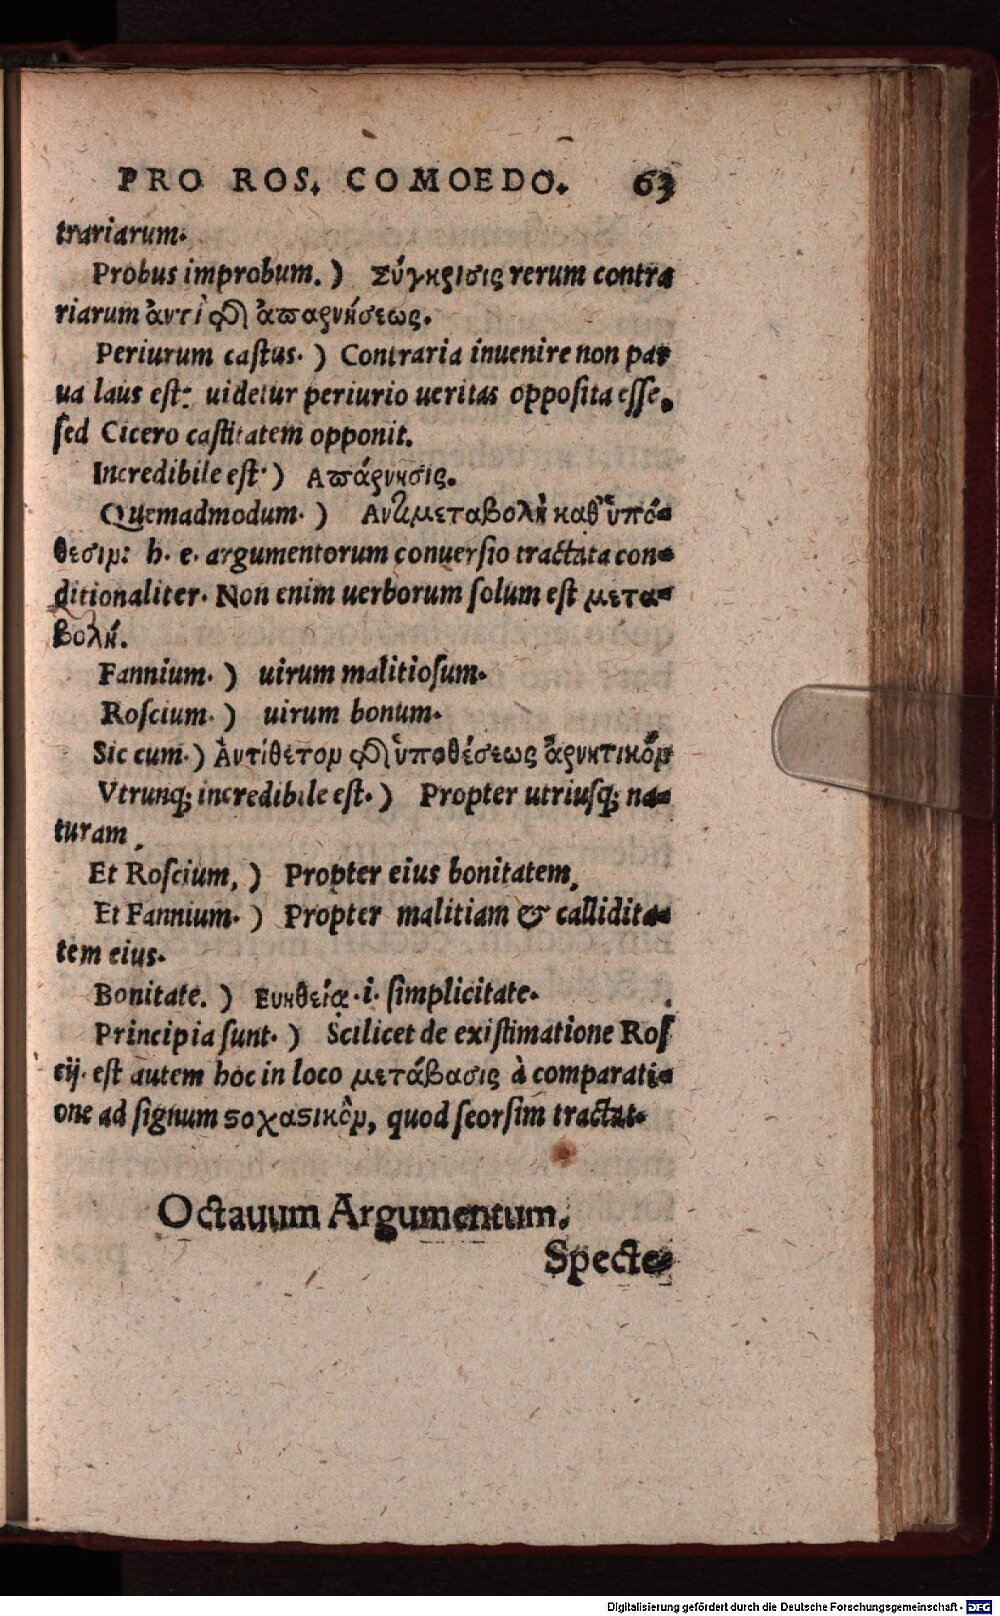 PRO ROS. COMOEDO. 63
trariarum.
Probus improbum. ) Σύγκρισις rerum contra
riarum ἀντὶ τῆς ἀπαρνήσεως.
Periurum castus. ) Contraria inuenire non par
ua laus est: uidetur periurio ueritas opposita esse,
sed Cicero castitatem opponit.
Incredibile est. ) Απάρνησις.
Quemadmodum. ) Αντιμεταβολὴ καθ' ὑπό-
θεσιν: h. e. argumentorum conuersio tractata con-
ditionaliter. Non enim uerborum solum est μετα-
βολή.
Fannium. ) uirum malitiosum.
Roscium. ) uirum bonum.
Sic cum. ) Ἀντίθετον τῆς ὑποθέσεως ἀρνητικὸν
Vtrunq; incredibile est. ) Propter utriusq; na-
turam.
Et Roscium, ) Propter eius bonitatem,
Et Fannium. ) Propter malitiam & callidita-
tem eius.
Bonitate. ) Ευηθείᾳ .i. simplicitate.
Principia sunt. ) Scilicet de existimatione Ros
cij. est autem hoc in loco μετάβασις à comparati-
one ad signum στοχαστικὸν, quod seorsim tractat.
Octauum Argumentum.
Specte-
Digitalisierung gefördert durch die Deutsche Forschungsgemeinschaft - DFG